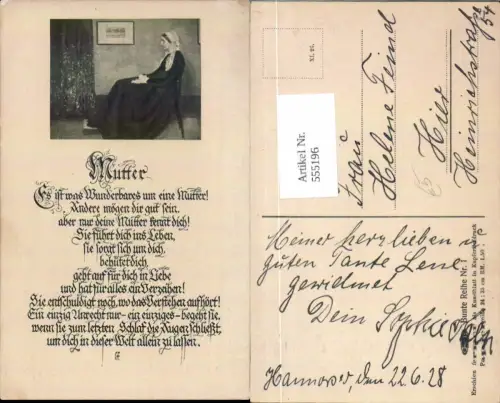 Mutter
Es ist was Wunderbares um eine Mutter!
Andere mögen dir gut sein,
aber nur deine Mutter kennt dich!
Sie führt dich ins Leben,
sie sorgt sich um dich,
behütet dich,
geht auf für dich in Liebe
und hat für alles ein Verzeihen!
Sie entschuldigt noch, wo das Verstehen aufhört!
Ein einzig Unrecht nur - ein einziges - begeht sie,
wenn sie zum letzten Schlaf die Augen schließt,
um dich in dieser Welt allein zu lassen.
XI. 16.
Artikel Nr.
555196
Frau
Helene Feind
Hier
Heinrichstraße
54
Meiner herzlieben
guten Tante Lene
gewidmet
Dein
Hannover, den 22.6.28
Reihe Nr.